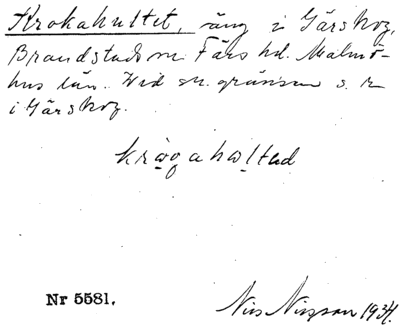 Krokahultet, äng i Gärskog,
Brandstads sn Färs hd. Malmö-
hus län. Vid sn. gränsen s. r
i Gärskog.
krågahultad
Nr 5581.
Nils Nilsson 1934.